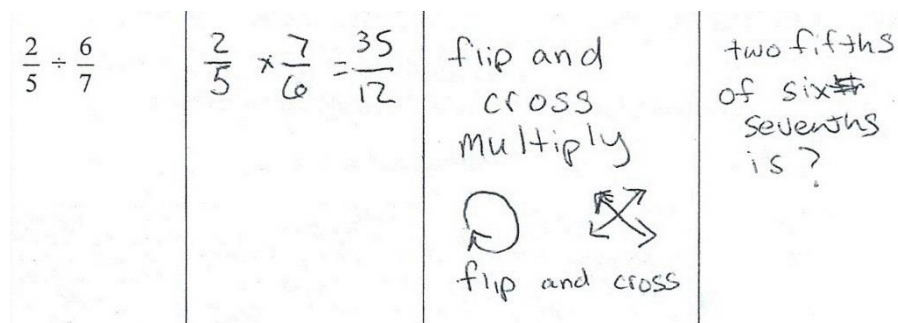 2/5 ÷ 6/7
2/5 × 7/6 = 35/12
flip and
cross
multiply
flip and cross
two fifths
of six
sevenths
is?